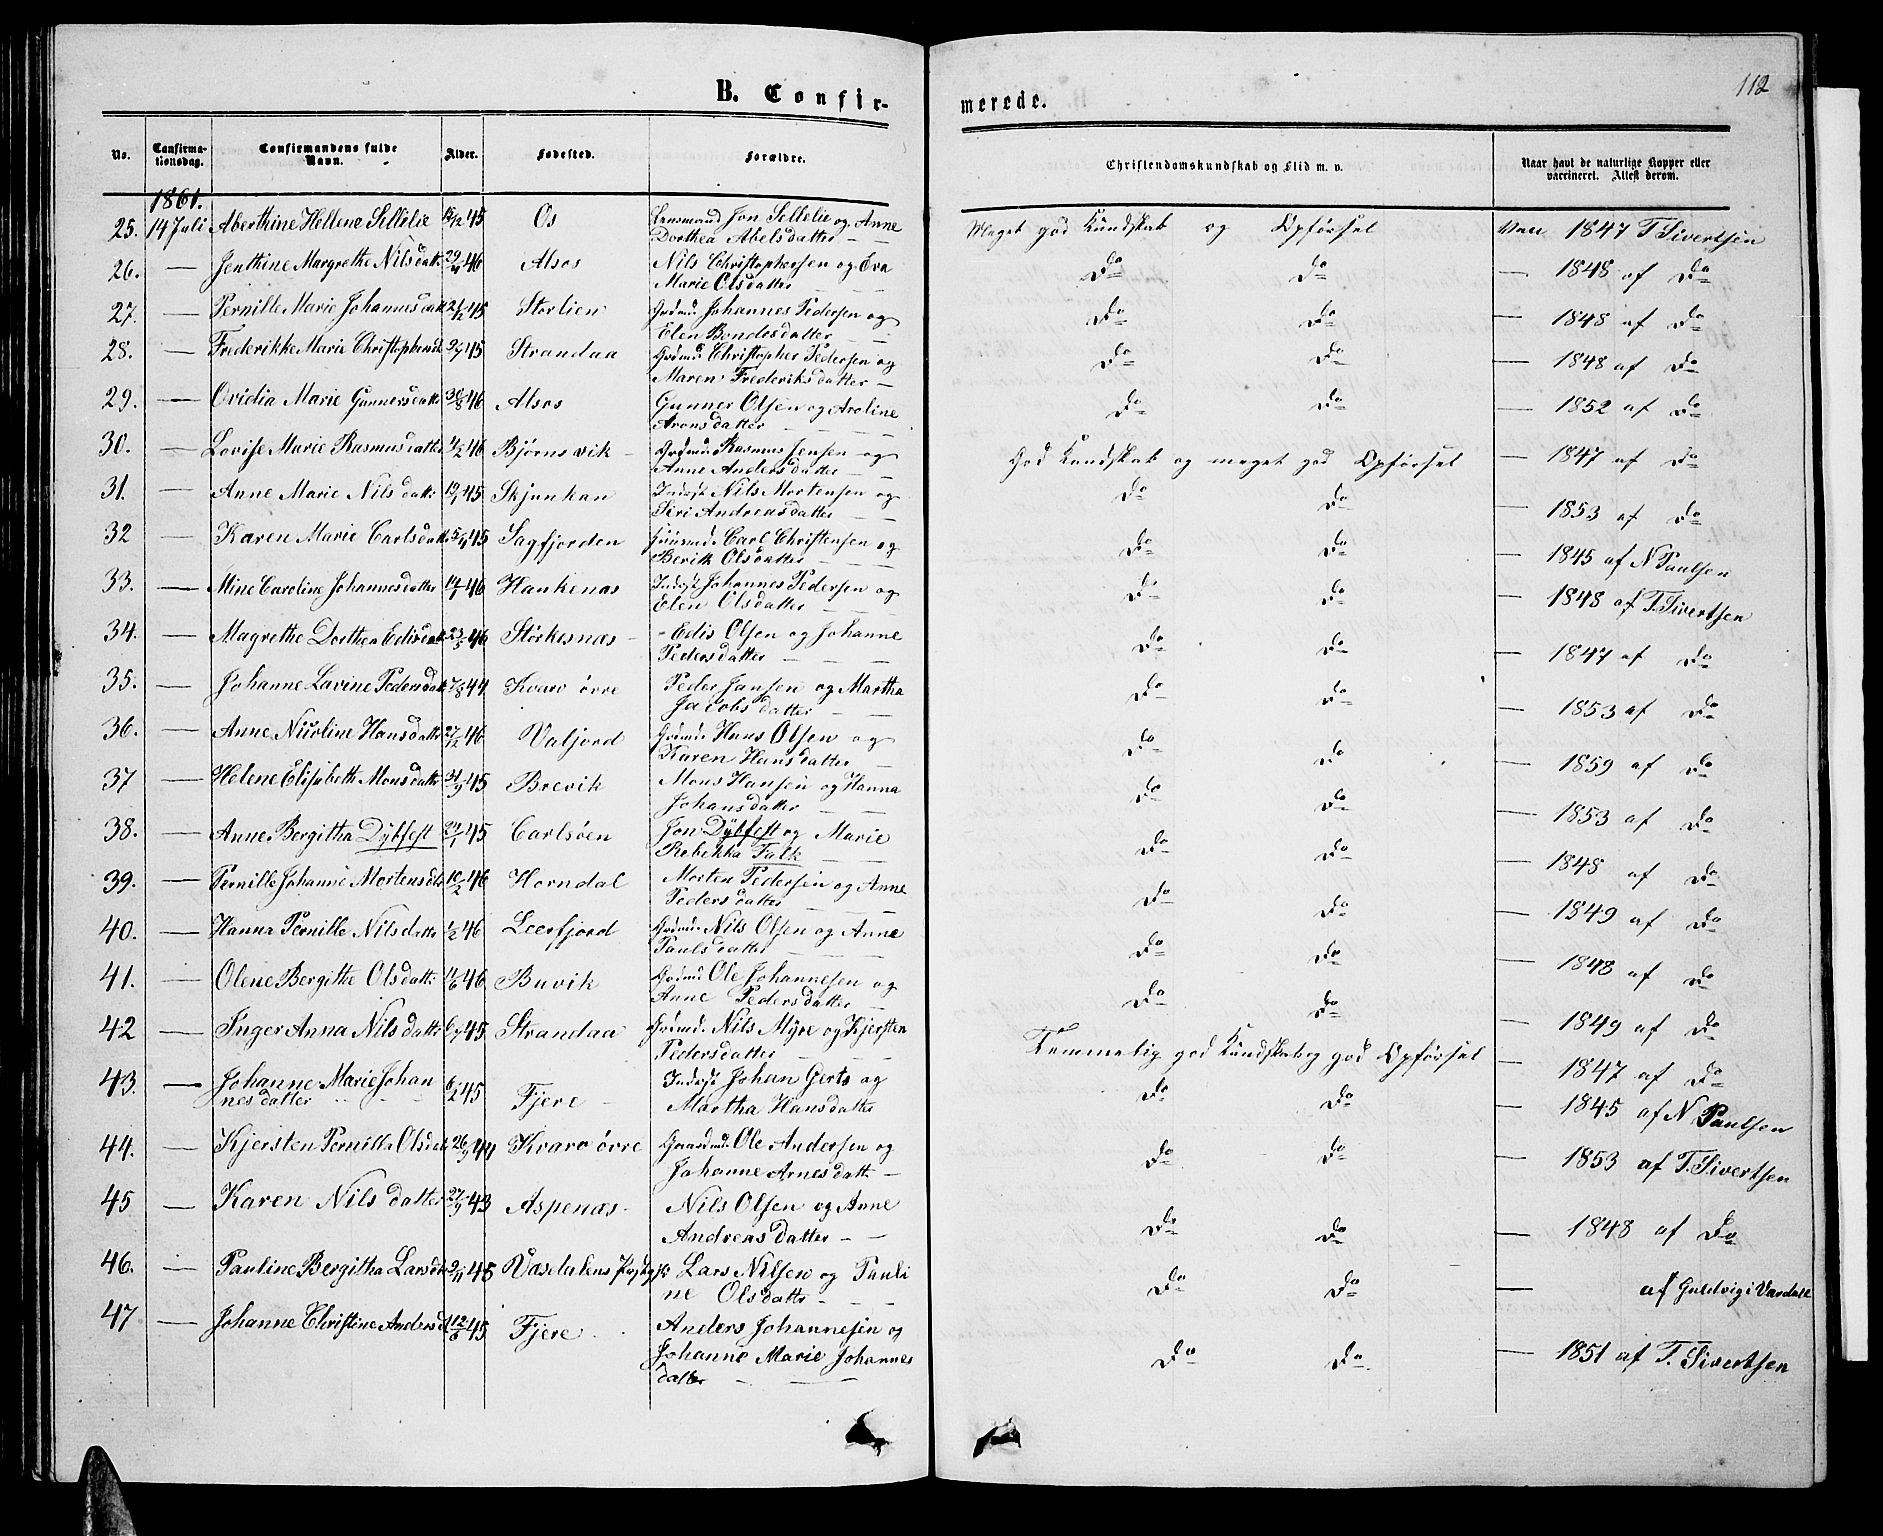 112
B. Confir-
merede.
No.
Confirma-
tionsdag.
Confirmandens fulde
Navn.
Alder.
Fødested.
Forældre.
Christendomskundskab og Flid m. v.
Naar havt de naturlige Kopper eller
vaccineret. Attest derom.
1861.
25. 14 Juli Aberthine Hellene Sellelie 45 Os Lensmand Jon Sellelie og Anne
Dorthea Abelsdatter — —
Meget god Kundskab og Opførsel Vac 1847 T Sivertsen
26. — Jenthine Margrethe Nilsdatt 29/4 46 Alsos Nils Christophersen og Eva
Marie Olsdatter — — —
Do Do — 1848 af Do
27. — Pernille Marie Johannesdatt 21/2 45 Storlien Grdmd. Johannes Pedersen og
Elen Bendosdatter — —
Do Do — 1848 af Do
28. — Frederikke Marie Christophersd 45 Strandaa Grdmd. Christopher Pedersen og
Maren Frederiksdatter —
Do Do — 1848 af Do
29. — Ovidia Marie Gunnersdatt 30/8 46 Alsos Gunner Olsen og Aroline
Aronsdatter — — —
Do Do — 1852 af Do
30. — Lovise Marie Rasmusdatter 4/2 46 Bjørnsvik — Grdmd. Rasmus Jensen og
Anne Andersdatter —
God Kundskab og meget god Opførsel — 1847 af Do
31. — Anne Marie Nilsdatt 45 Skjunkan Inderst Nils Mortensen og
Siri Andreasdatter — —
Do Do — 1853 af Do
32 — Karen Marie Carlsdatt 45 Sagfjorden Huusmd. Carl Christensen og
Berit Olsdatter — —
Do Do — 1845 af N Paulsen
33. — Mine Caroline Johannesdatter 14/1 46 Hankenæs Inderst Johannes Pedersen og
Elen Olsdatter — —
Do Do — 1848 af T. Sivertsen
34. — Magrethe Dorthea Edisdatt 23/5 46 Størkesnæs — Edis Olsen og Johanne
Pedersdatter — — —
Do Do — 1847 af Do
35. — Johanne Lavine Pedersdatt 7/8 44 Kvarv øvre Peder Jansen og Martha
Jacobsdatter — —
Do Do — 1853 af Do
36. — Anne Nicoline Hansdatt 27/12 46 Valjord Grdmd. Hans Olsen og
Karen Hansdatter —
Do Do — 1859 af Do
37 — Helene Elisabeth Monsdatt 45 Brevik Mons Hansen og Hanna
Johansdatter — —
Do Do — 1853 af Do
38. — Anne Bergitha Dybfest 45 Carlsøen Jon Dybfest og Marie
Rebekka Falk — —
Do Do — 1848 af Do
39. — Pernille Johanne Mortensdtr 10/2 46 Horndal Morten Pedersen og Anne
Pedersdatter — —
Do Do — 1849 af Do
40. — Hanna Pernille Nilsdatter 1/2 46 Leerfjord Grdmd. Nils Olsen og Anne
Paulsdatter — —
Do Do — 1848 af Do
41. — Olene Bergithe Olsdatt 11/6 46 Buvik Grdmd. Ole Johannesen og
Anne Pedersdatter —
Do Do — 1849 af Do
42 — Inger Anna Nilsdatter 45 Strandaa Grdmd. Nils Myre og Kjersten
Pedersdatter — — —
Temmelig god Kundskab og god Opførsel — 1847 af Do
43. — Johanne Marie Johan
nesdatter — — 45 Fjere — Inderst Johan Gerts og
Martha Hansdatter
Do Do — 1845 af N Paulsen
44. — Kjersten Pernilla Olsdatt 26/9 44 Kvarv øvre Gaardmd. Ole Andersen og
Johanne Arnesdatt —
Do Do — 1853 af T. Sivertsen
45 — Karen Nilsdatter 27/9 43 Aspenæs — Nils Olsen og Anne
Andreasdatter — —
Do Do — 1848 af Do
46. — Pauline Bergitha Larsdtr 2/11 45 Væsdalens Præstegjk Lars Nilsen og Pauli
ne Olsdatter — — —
Do Do — af Guldvig i Værdale
47 — Johanne Christine Andersd 12/6 45 Fjere — Anders Johannesen og
Johanne Marie Johannes
datter — —
Do Do — 1851 af T. Sivertsen